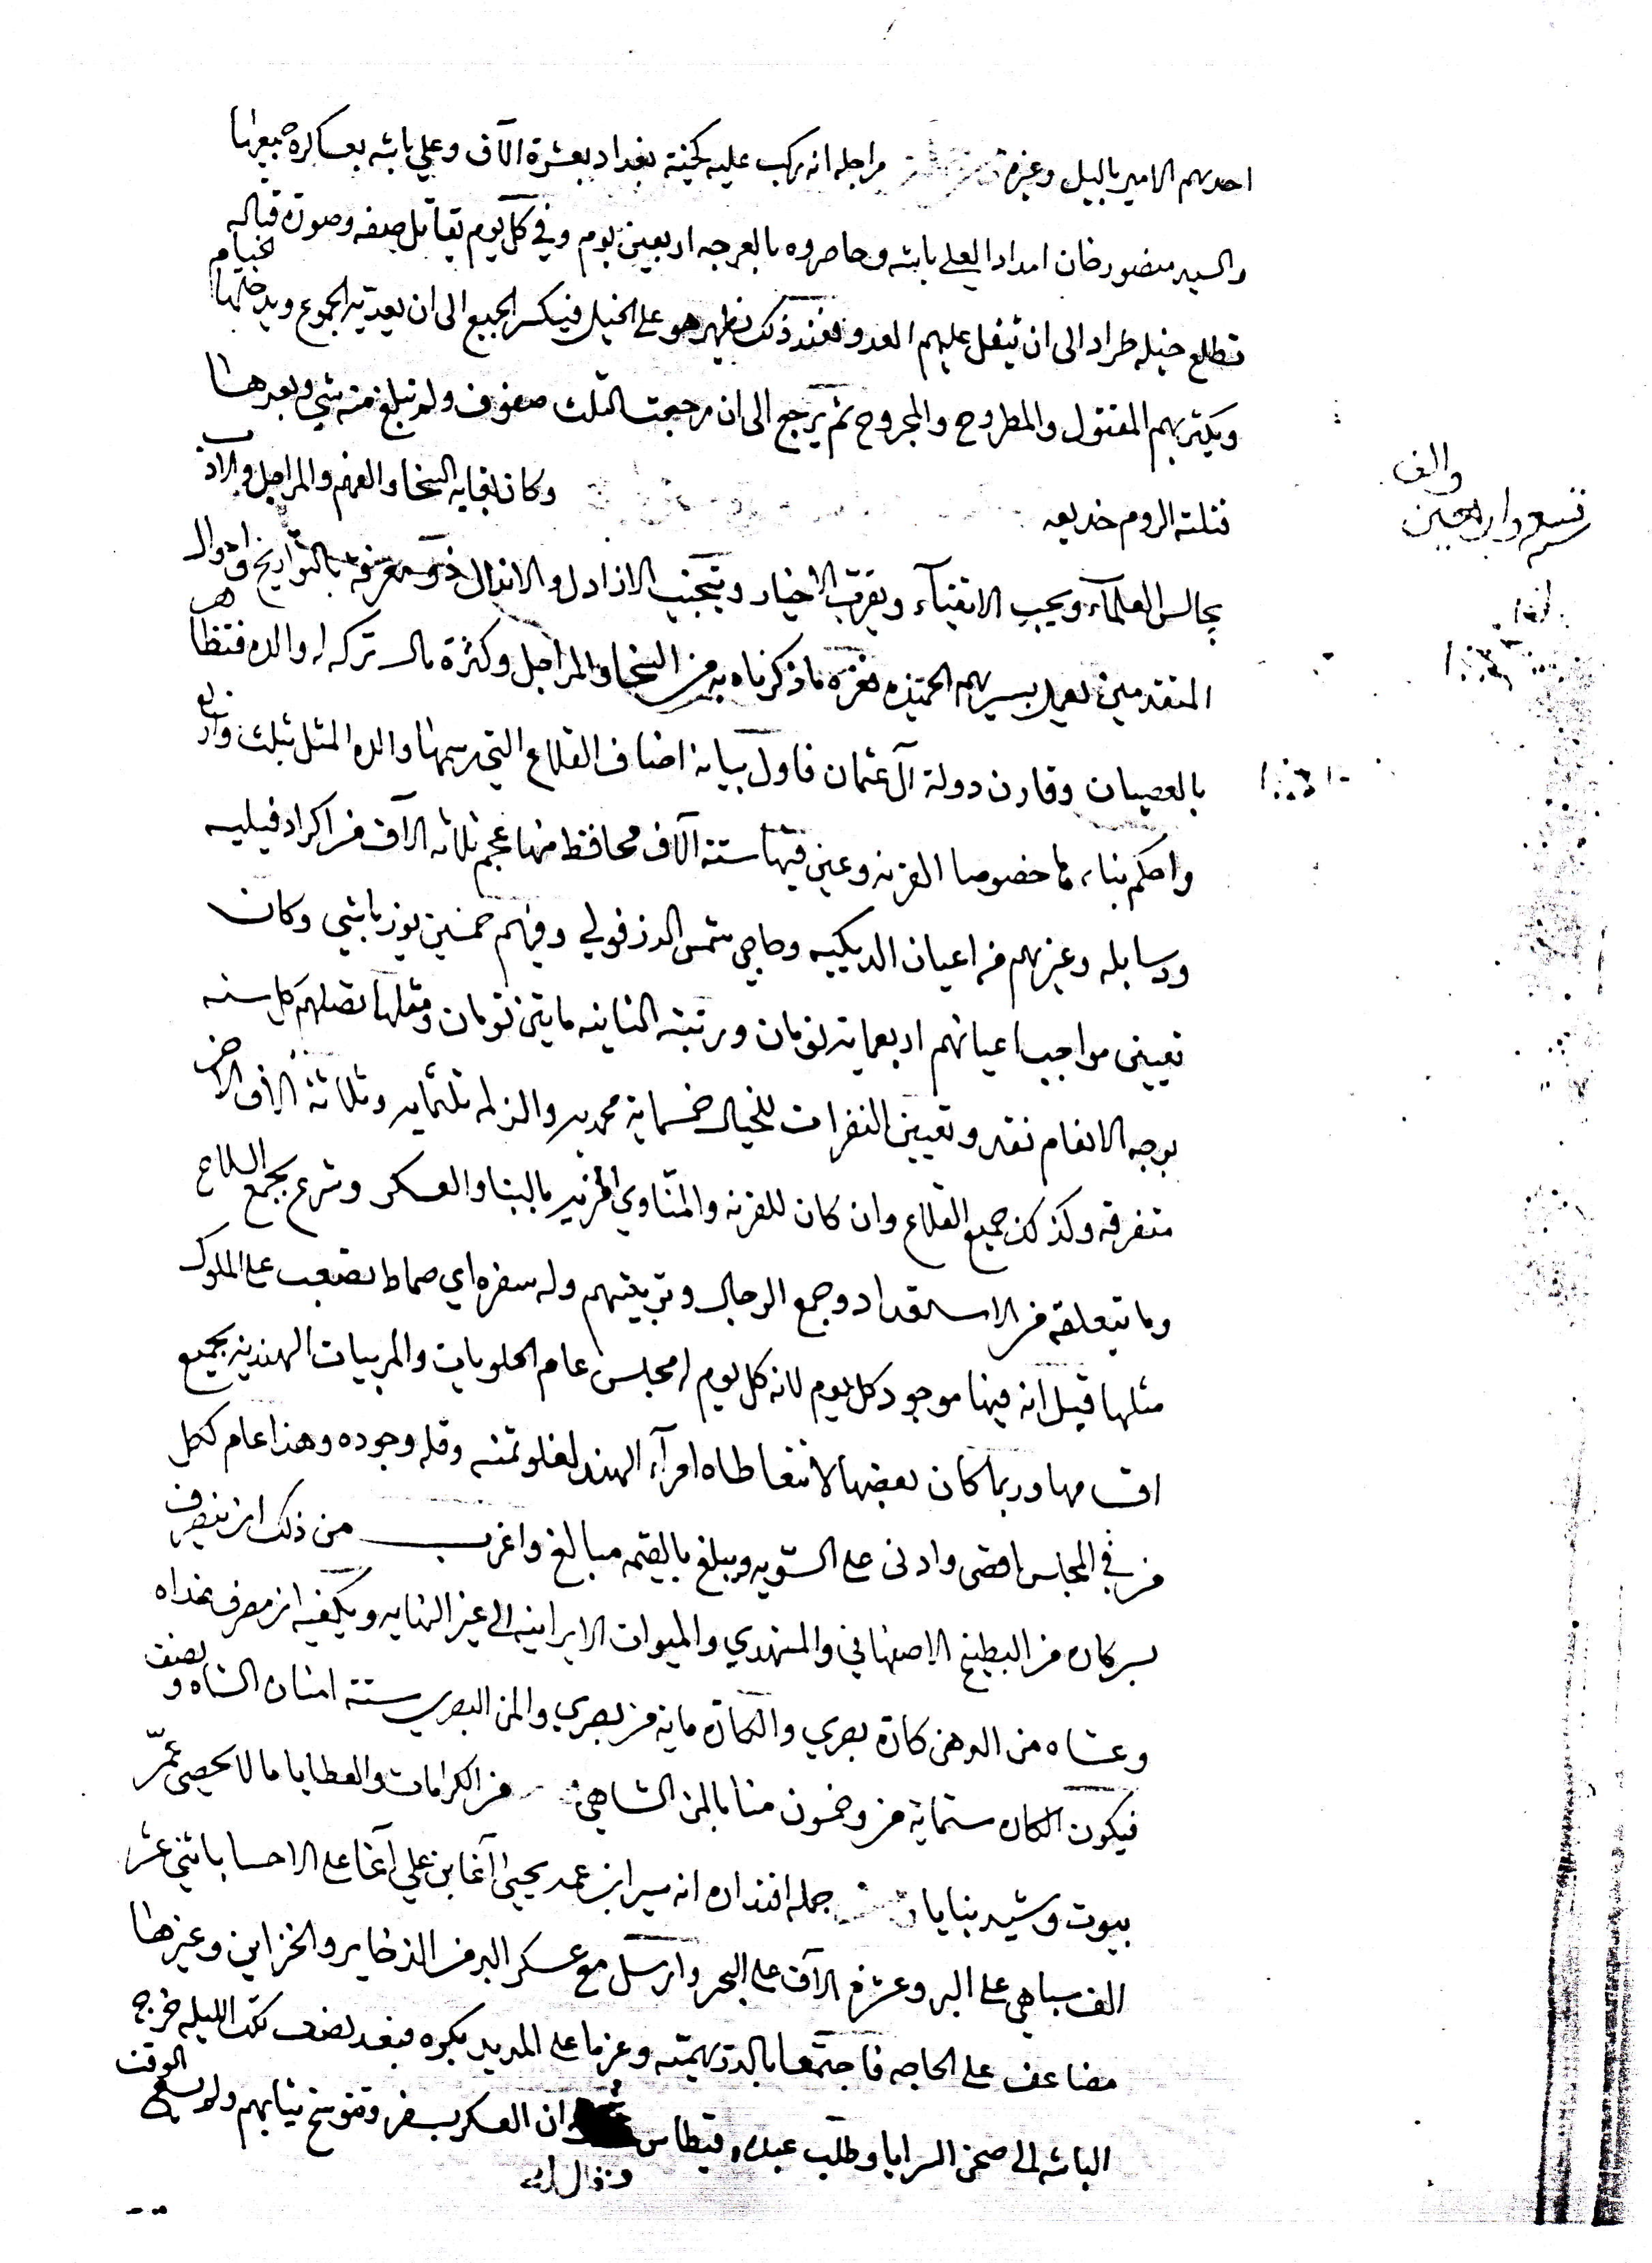 احدهم الامير بالبيل وغيره مراجله انه ركب عليه كخية بغداد بعشرة الآف وعلي باشه بعساكره جميعها
والسيد منصور خان امداد العلي باشه وحاصروه بالعرجه اربعين يوم وفي كل يوم يقاتل صفه وصورة قتاله
تطلع خيله طراد الى ان ثيفل عليهم العدو فعند ذلك يظهر هو على الخيل فيكسر الجميع الى ان يعديه الجموع ويدخلها لخيام
ويكثر بهم المقتول والمطروح والمجروح ثم يرجع الى ان رجعت الثلث صفوف ولم تبلغ منه شي وبعدها
قتلته الروم خديعه وكان بغايه السخا والفهم والمراجل والادب
والف
تسع واربعين
يجالس العلمآء ويحب الاتقيآء ويقرب الاخيار ويتجنب الاراذل والانذال ذو معرفه بالتواريخ واحوال
المتقدمين يعمل بسيرهم الحميده فغره ما ذكرناه به من السخا والمراجل وكثرة مال تركه له والده فتظاهر
بالعصيان وقارن دولة آل عثمان فاول بيانه اضاف القلاع التي رسمها والده المثل بثلث وارباع
واحكم بناءها خصوصا القرنه وعين فيها ستة آلاف محافظ منها عجم ثلاثه الآف من اكراد فيليه
ودسابله وغيرهم من اعيان الديكيه وحاجي شمس الدزفولي وفيهم خمسين يوزباشي وكان
تعيين مواجب اعيانهم اربعمايه تومان ورتبته الثانيه مايتي تومان ومثلها تصلهم كل سنه
بوجه الانعام نقد وتعيين النفرات للخيال خمسماية محمديه والزلمه ثلثمايه وثلاثة الاف الاخر
متفرقه وكذلك جميع القلاع وان كان للقرنه والمناوي المزيد بالبنا والعسكر وشرع بجمع السلاح
وما يتعلقه من الاستعداد وجمع الرجال وتربيتهم وله سفره اي صماط تصعب على الملوك
مثلها قيل انه فيها موجود كل يوم لانه كل يوم له مجلس عام الحلويات والمربيات الهنديه بجميع
اقسامها وربما كان بعضها لا تتعاطاه امرآء الهند لغلو ثمنه وقله وجوده وهذا عام لكل
من في المجلس اقصى وادنى على السويه ويبلغ بالقيمه مبالغ واغرب من ذلك انه ينصرف
بسركاره من البطيخ الاصفهاني والمشهدي والميوات الايرانيه الى غير النهايه ويكفيه انه مصرف غداه
وعشاه من الدهن كارة بصري والكارة مايه من بصري والمن البصري ستة امنان الشاه ونصف
فيكون الكاره ستماية من وخمسون منا بالمن الشاهي من الكرامات والعطايا ما لا يحصى عمّر
بيوت وشيد بنايا جمله اقتداره انه سير ابن عمه يحيى آغا بن علي آغا على الاحسا باثني عشر
الف سباهي على البر وعشرة الآف على البحر وارسل مع عسكر البر من الذخاير والخزاين وغيرها
مضاعف على الحاجه فاجتمعا بالدرهميه وعزما على المديد بكره فبعد نصف تلك الليله خرج
الباشه الى صحن السرايا وطلب عبده قيطاس وقال له ان العسكر بسفر وتتوسخ ثيابهم ولم يسع الوقت